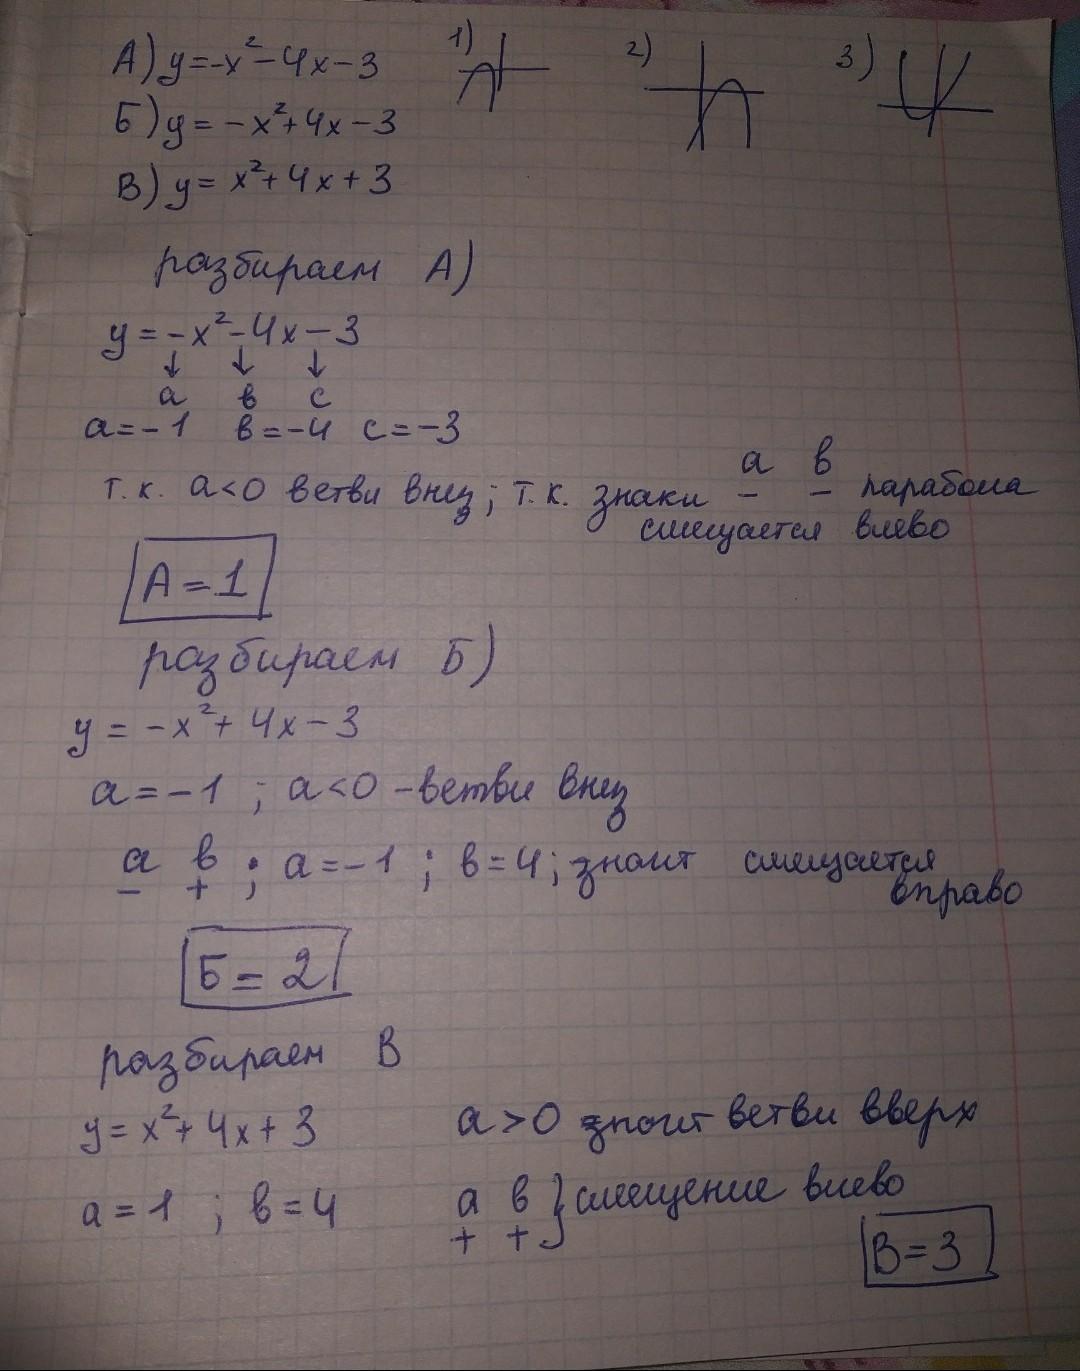 А) y=-x²-4x-3 1) 2) 3)
Б) y=-x²+4x-3
В) y=x²+4x+3
разбираем А)
y=-x²-4x-3
↓ ↓ ↓
а в с
а=-1 в=-4 с=-3
т.к. а<0 ветви вниз; т.к. знаки а в парабола
- -
смещается влево
А=1
разбираем Б)
y=-x²+4x-3
а=-1 ; а<0 - ветви вниз
а в ; а=-1 ; в=4; значит смещается
- + вправо
Б=2
разбираем В
y=x²+4x+3 а>0 значит ветви вверх
а=1 ; в=4 а в } смещение влево
+ +
В=3